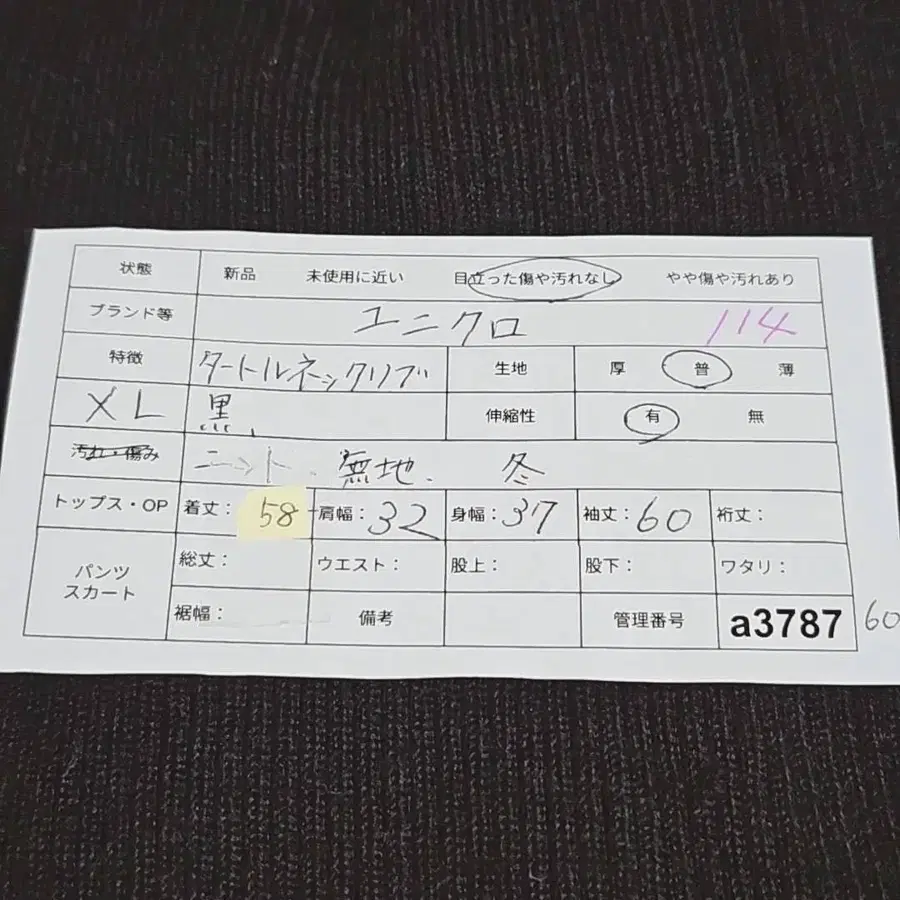 状態 新品 未使用に近い 目立った傷や汚れなし やや傷や汚れあり
ブランド等 ユニクロ 114
特徴 タートルネックリブ 生地 厚 普 薄
XL 黒、 伸縮性 有 無
汚れ・傷み ニット、無地、 冬
トップス・OP 着丈: 58 肩幅: 32 身幅: 37 袖丈: 60 裄丈:
パンツ スカート 総丈: ウエスト: 股上: 股下: ワタリ:
裾幅: 備考 管理番号 a3787 60